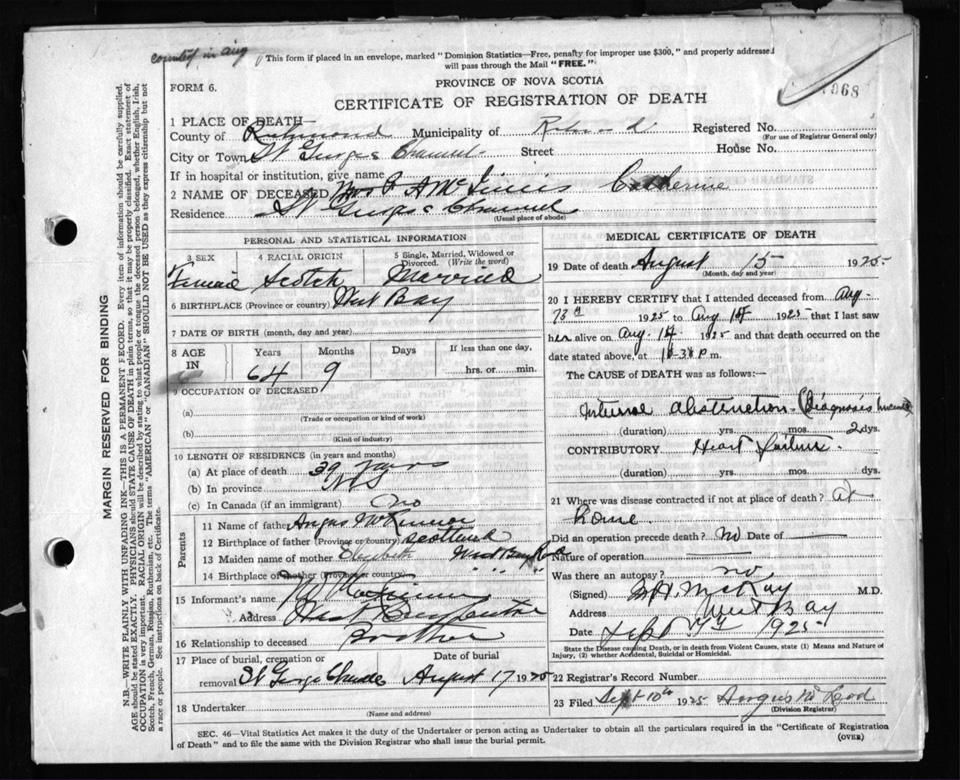 counted in aug
This form if placed in an envelope, marked "Dominion Statistics—Free, penalty for improper use $300," and properly addressed
will pass through the Mail "FREE."
PROVINCE OF NOVA SCOTIA
FORM 6.
CERTIFICATE OF REGISTRATION OF DEATH
968
1 PLACE OF DEATH—
County of Richmond Municipality of Registered No.
(For use of Registrar General only)
City or Town St Georges Channel Street House No.
If in hospital or institution, give name
2 NAME OF DECEASED Mrs P A McGinnis Catherine
Residence St Georges Channel
(Usual place of abode)
PERSONAL AND STATISTICAL INFORMATION
3 SEX 4 RACIAL ORIGIN 5 Single, Married, Widowed or
Divorced. (Write the word)
Female Scotch Married
6 BIRTHPLACE (Province or country) West Bay
7 DATE OF BIRTH (month, day and year)
8 AGE IN Years Months Days If less than one day,
hrs. or min.
64 9
9 OCCUPATION OF DECEASED
(a)
(Trade or occupation or kind of work)
(b)
(Kind of industry)
10 LENGTH OF RESIDENCE (in years and months)
(a) At place of death 39 years
(b) In province NS
(c) In Canada (if an immigrant) no
Parents
11 Name of father Angus McKinnon
12 Birthplace of father (Province or country) Scotland
13 Maiden name of mother Elizabeth West Bay Road
14 Birthplace of mother (Province or country) " " "
15 Informant's name
Address West Bay Centre
16 Relationship to deceased Brother
17 Place of burial, cremation or Date of burial
removal St George Channel August 17 1925
18 Undertaker
(Name and address)
MEDICAL CERTIFICATE OF DEATH
19 Date of death August 15 1925
(Month, day and year)
20 I HEREBY CERTIFY that I attended deceased from Aug
13th 1925 to Aug 14 1925 that I last saw
her alive on Aug. 14 1925 and that death occurred on
date stated above, at 10-30 p m.
The CAUSE of DEATH was as follows:—
Internal Obstruction (Diagnosis
(duration) yrs. mos. 2 dys.
CONTRIBUTORY Heart Failure
(duration) yrs. mos. dys.
21 Where was disease contracted if not at place of death? at
home.
Did an operation precede death? No Date of
Nature of operation
Was there an autopsy? no
(Signed) McKay M.D.
Address West Bay
Date Sept 1925
State the Disease causing Death, or in death from Violent Causes, state (1) Means and Nature of
Injury, (2) whether Accidental, Suicidal or Homicidal.
22 Registrar's Record Number
23 Filed Sept 10th 1925 Angus McLeod
(Division Registrar)
SEC. 46—Vital Statistics Act makes it the duty of the Undertaker or person acting as Undertaker to obtain all the particulars required in the "Certificate of Registration
of Death" and to file the same with the Division Registrar who shall issue the burial permit.
(OVER)
MARGIN RESERVED FOR BINDING
N.B.—WRITE PLAINLY WITH UNFADING INK—THIS IS A PERMANENT RECORD. Every item of information should be carefully supplied.
AGE should be stated EXACTLY. PHYSICIANS should STATE CAUSE OF DEATH in plain terms, so that it may be properly classified. Exact statement of
OCCUPATION is very important. RACIAL ORIGIN will be described by stating to what people or tongue the deceased person belonged, whether English, Irish,
Scotch, French, German, Russian, Ruthenian, etc. The terms "AMERICAN" or "CANADIAN" SHOULD NOT BE USED as they express citizenship but not
a race or people. See instructions on back of Certificate.